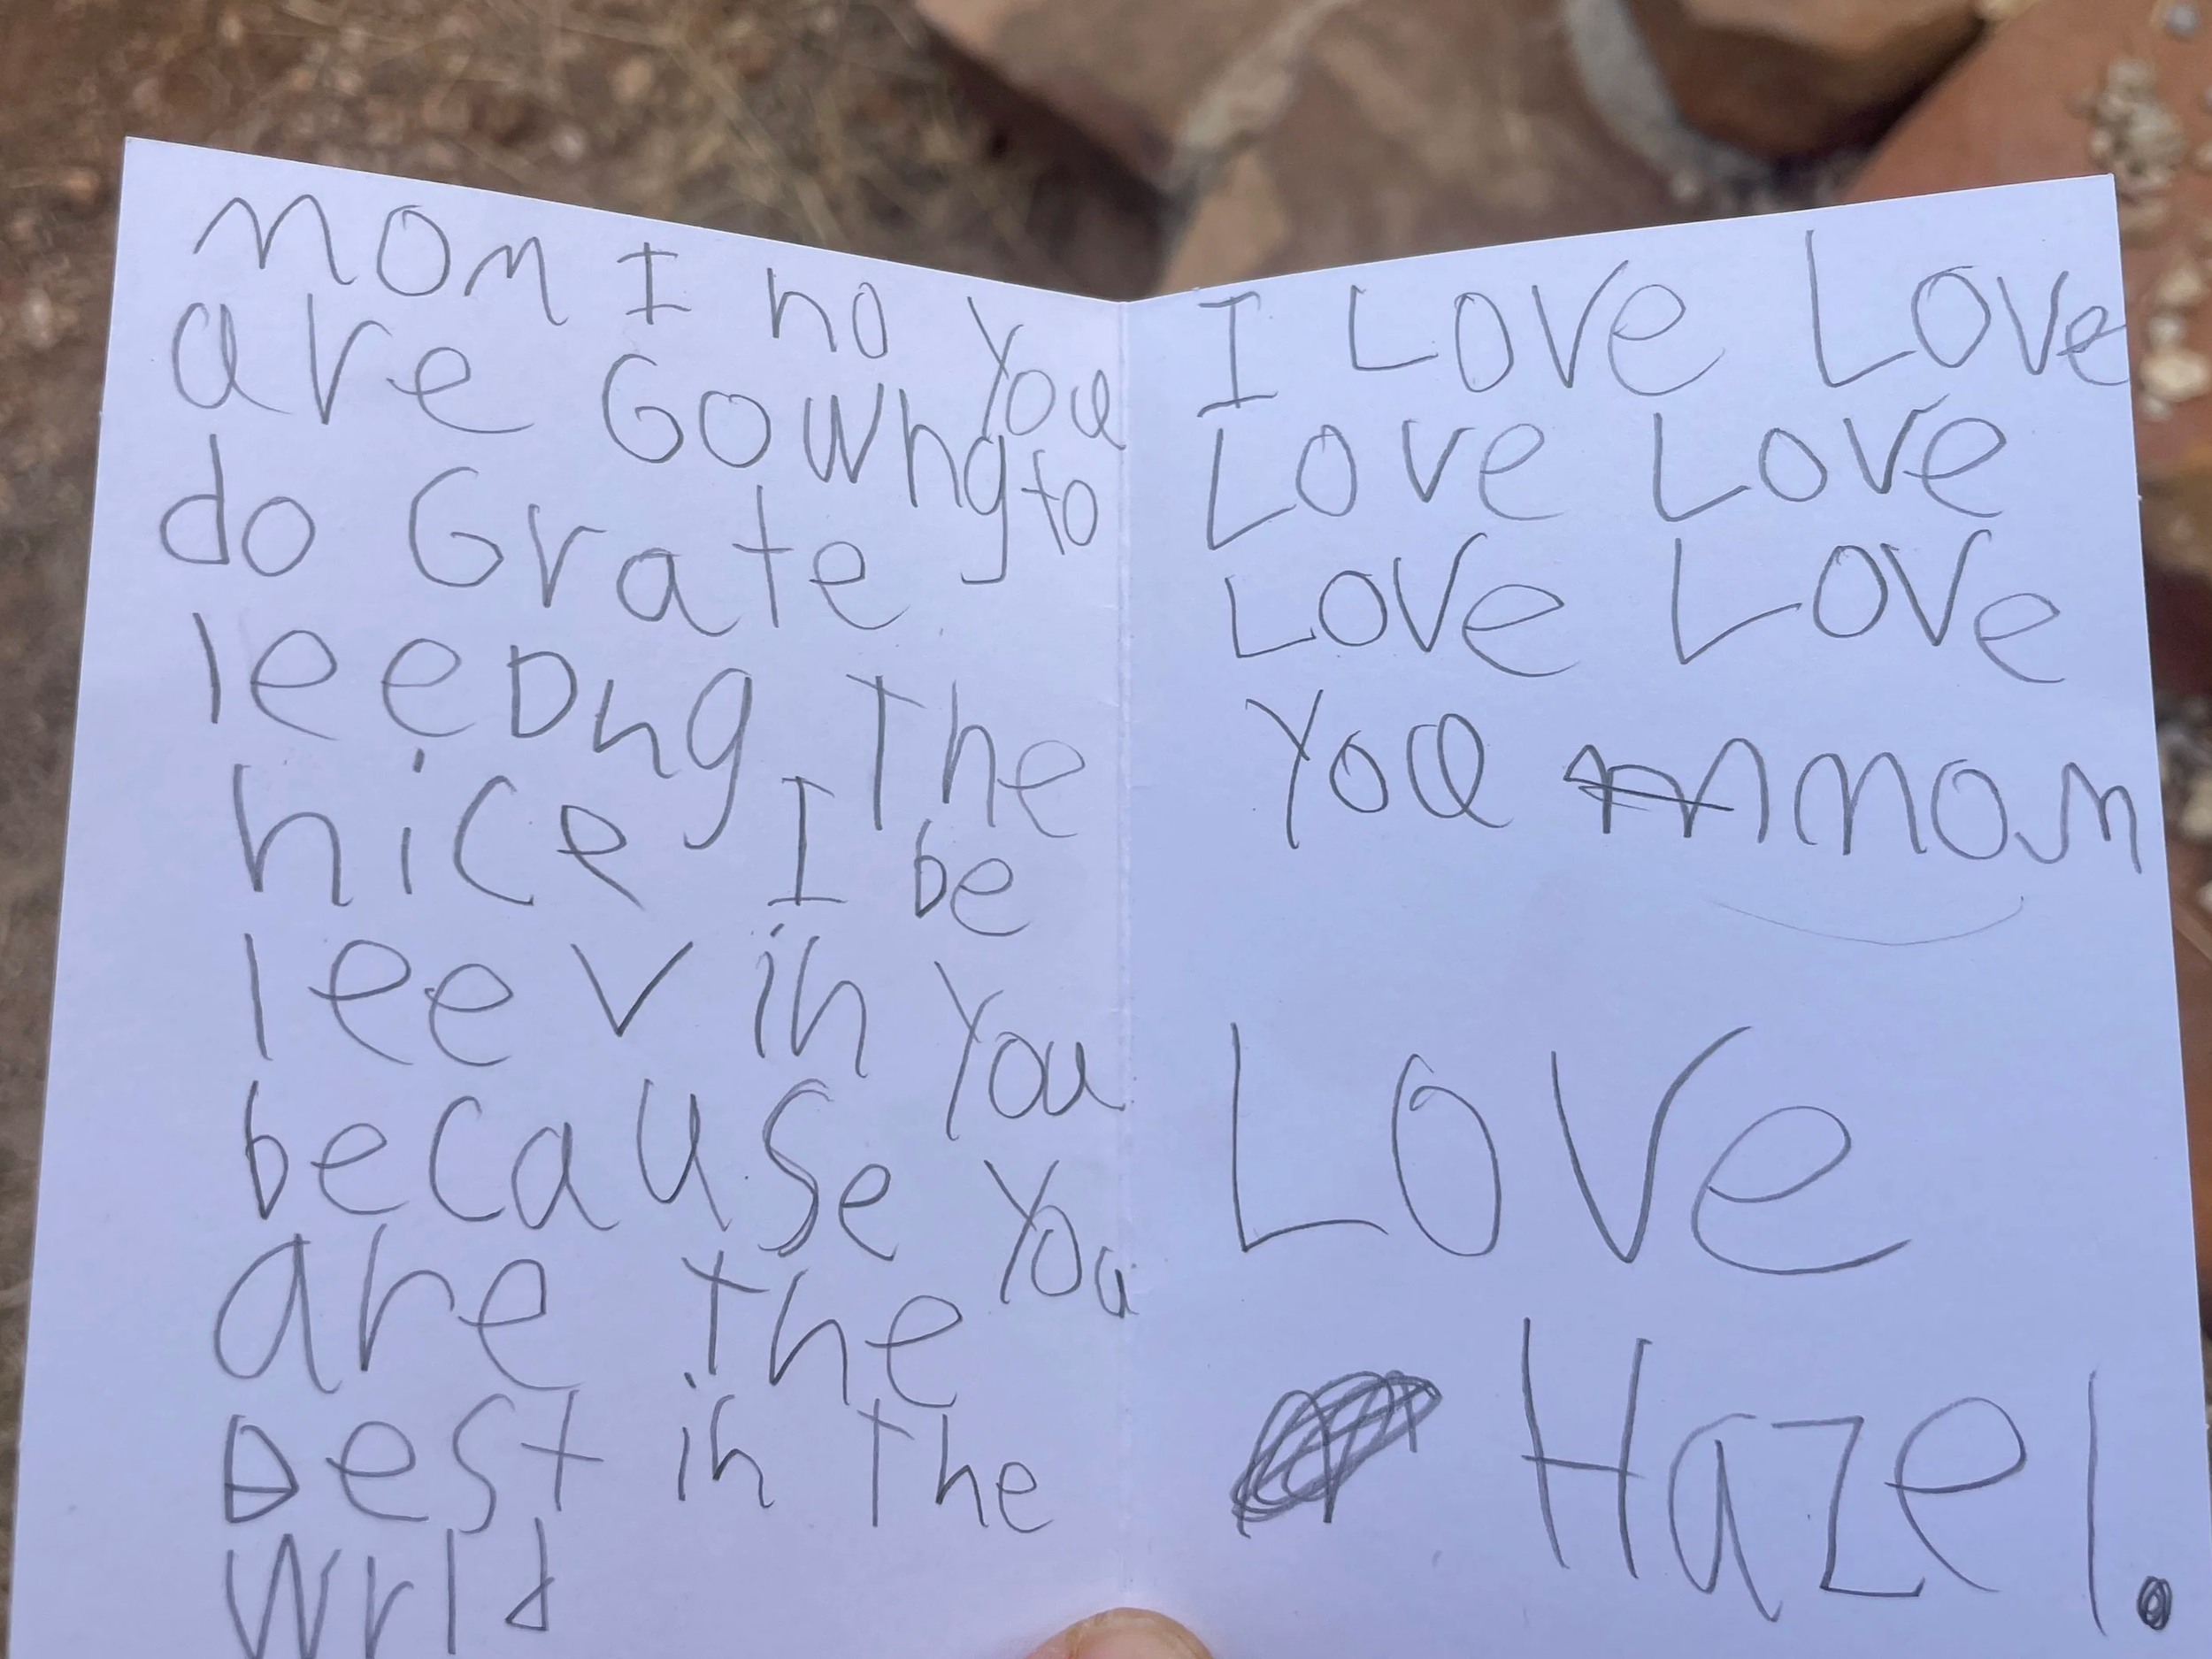 mom I no You
are GOWhg to
do Grate
leeDng The
nice I be
leev in You
because You
are the
Dest in The
Wrld
I Love Love
Love Love
Love Love
You mom
Love
Hazel.